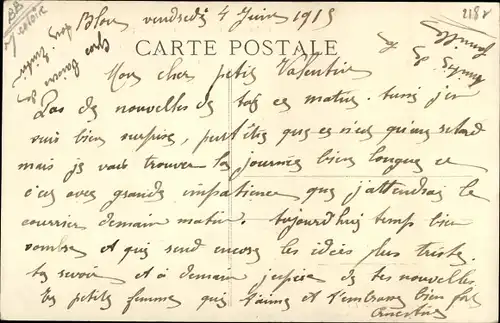 Blois vendredi 4 Juin 1915
CARTE POSTALE
Mon cher petit Valentin
Pas de nouvelles de toi ce matin. aussi j'en
suis bien surprise, peut être que ce n'est qu'un retard
mais je vais trouver la journée bien longue et
c'est avec grande impatience que j'attendrai le
courrier demain matin. aujourd'hui temps bien
sombre et qui rend encore les idées plus tristes.
au revoir et à demain j'espère de tes nouvelles
ta petite femme qui t'aime et t'embrasse bien fort
Ernestine
218v